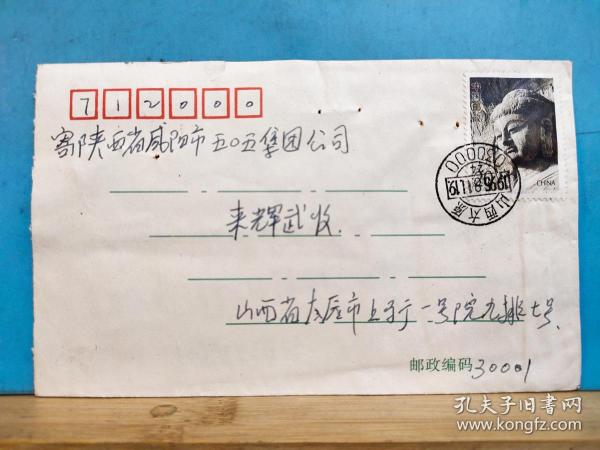 712000
寄陕西省咸阳市五〇五集团公司
来辉武收.
山西省太原市上马街一号院九排七号.
邮政编码 30001
CHINA
山西太原
孔夫子旧书网
www.kongfz.com